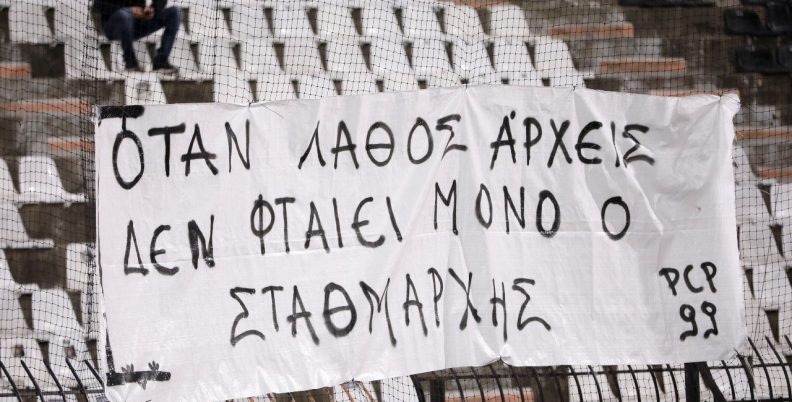 ΟΤΑΝ ΛΑΘΟΣ ΑΡΧΕΙΣ
ΔΕΝ ΦΤΑΙΕΙ ΜΟΝΟ Ο
ΣΤΑΘΜΑΡΧΗΣ
PCP
99